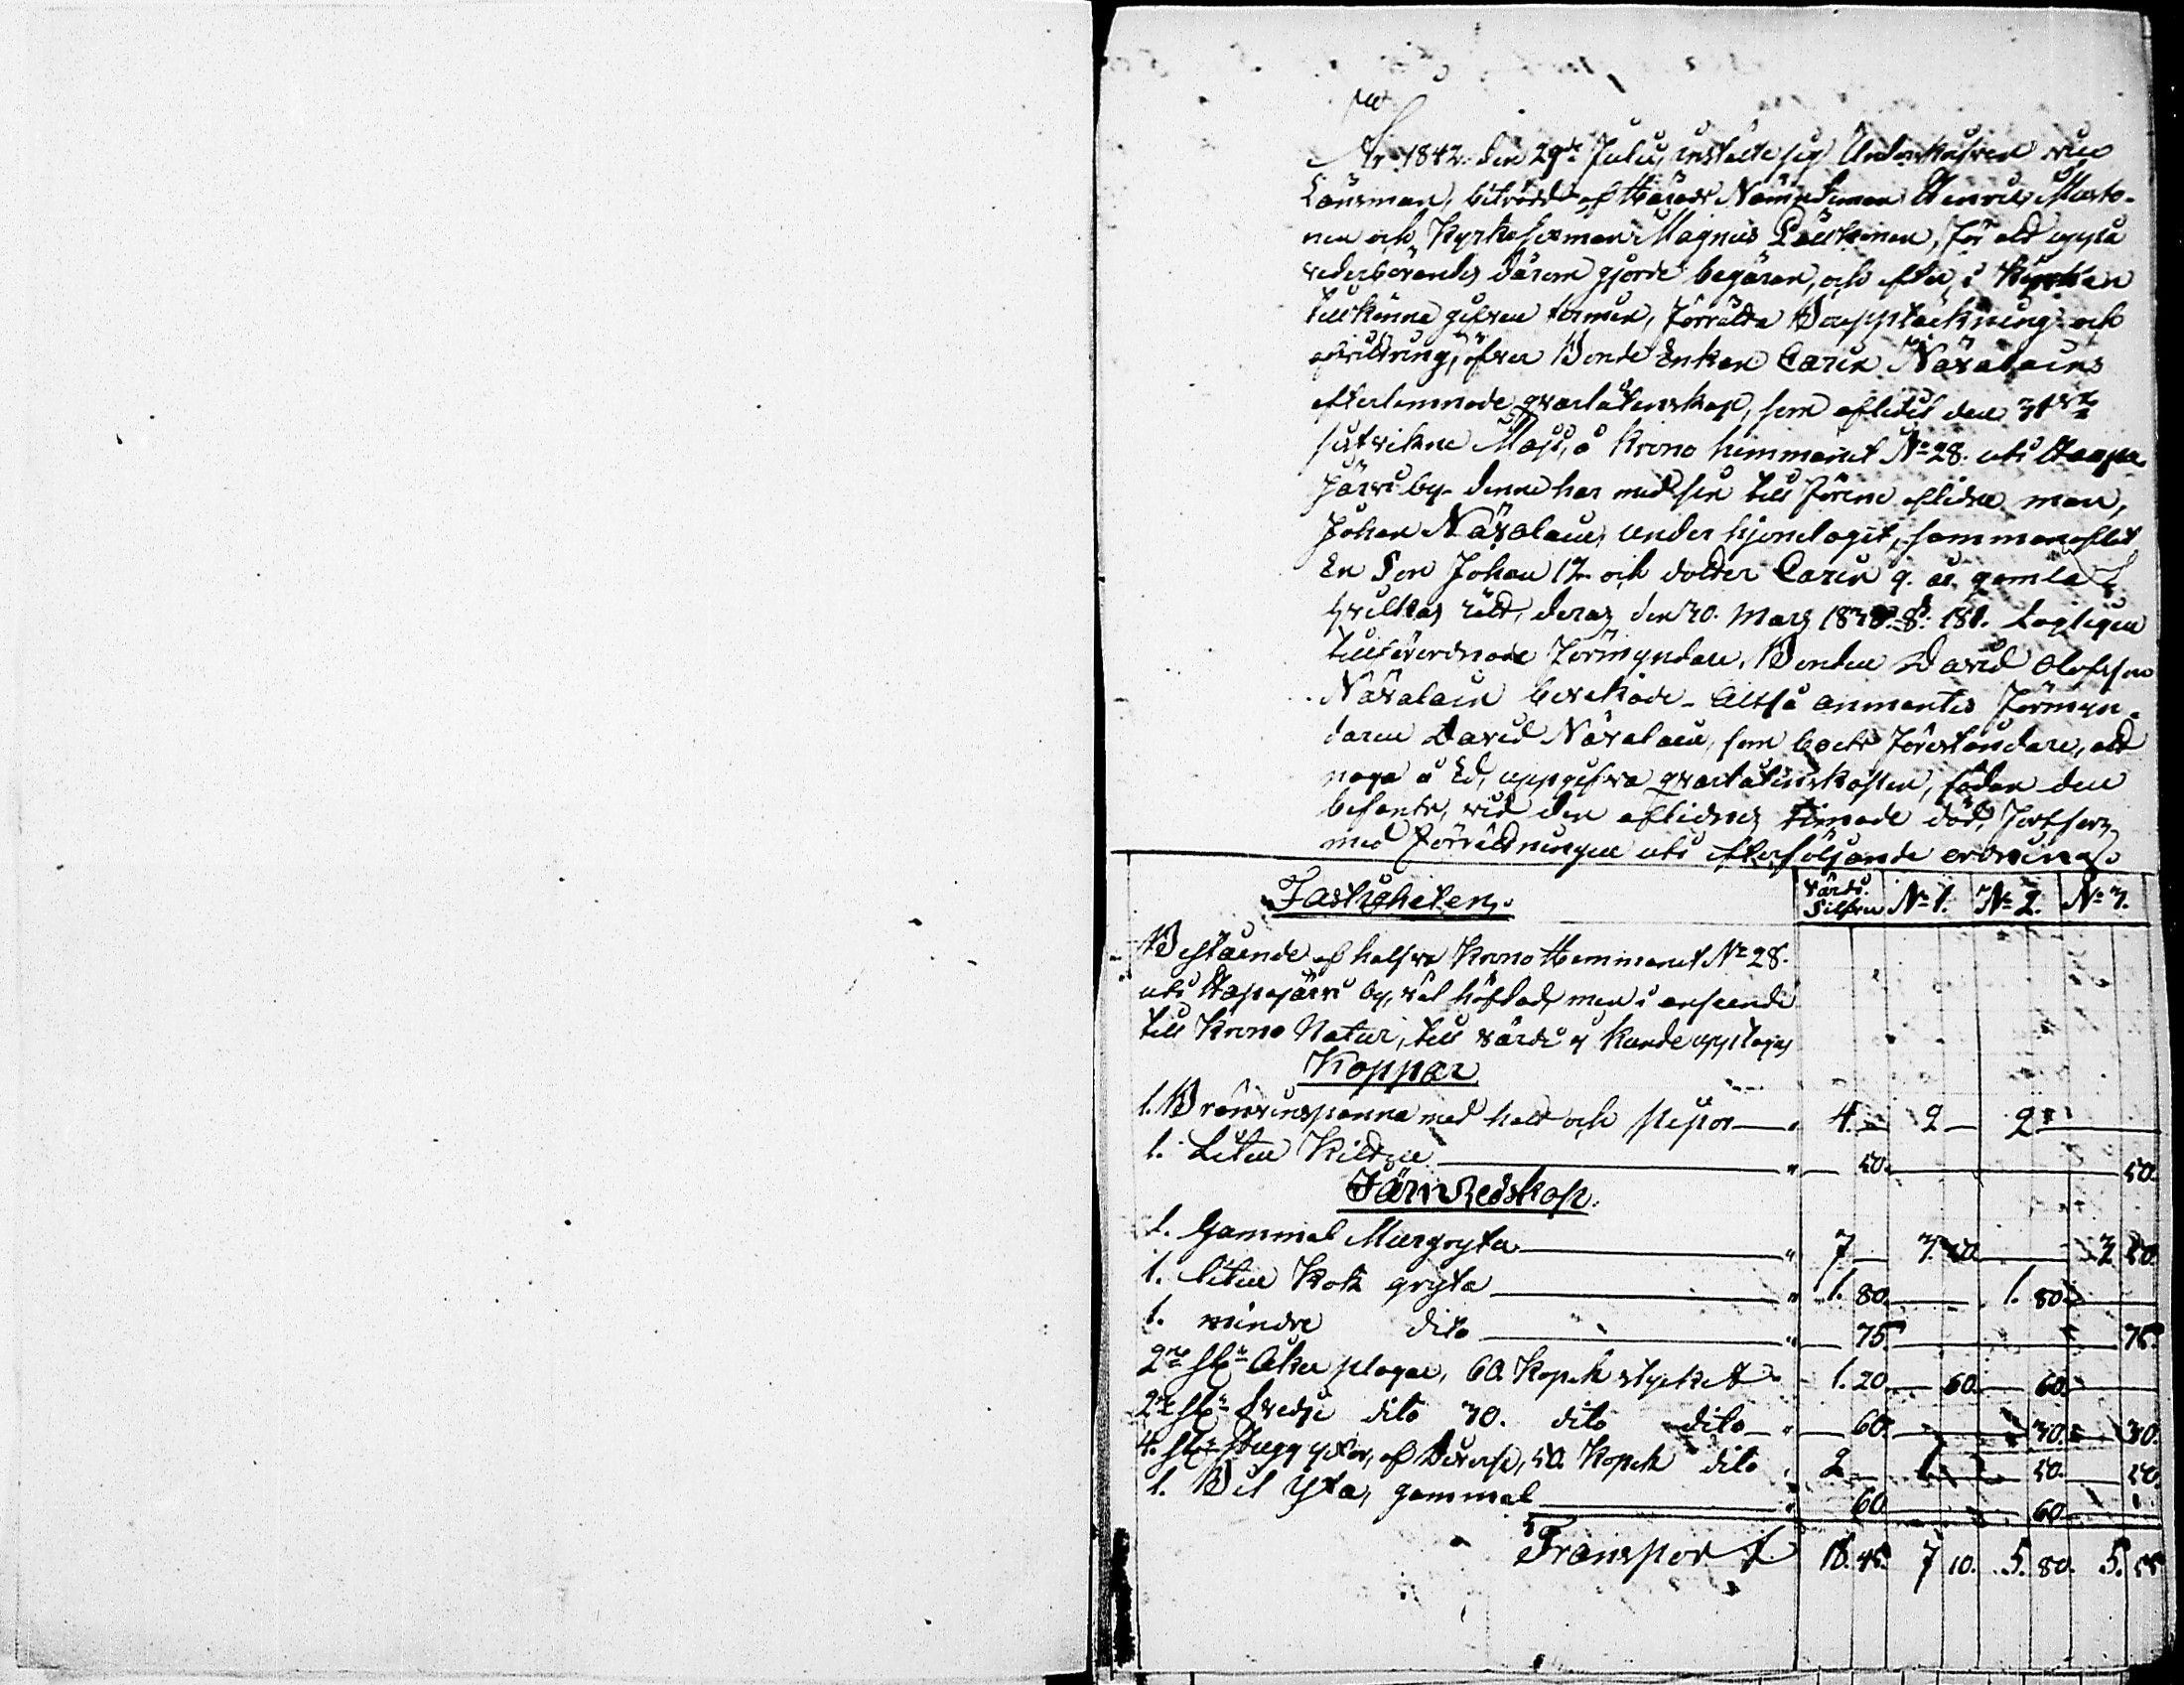 År 1842. den 29de Julii, instälte sig Underskrefven vice
Länsman, biträdd af Härads Nämndeman Henric Marto-
nen och Kyrkosexman Magnus Pauthonen, för att uppå
vederbörandes därom gjorde begäran, och efter i Kyrkan
tillkänna gifven termin, förrätta Bouppteckning och
afvitring, öfver Bonde Enkan Carin Näsalains
efterlemnade qvarlåtenskap, som aflidit den 31sta
sistvikne Maji, å Krono hemmanet No 28. uti Haapa
järvi by. denne har med sin till förene aflidne man,
Johan Näsalain, under hjonelaget, sammanaflat
En Son Johan 12 och dotter Carin 9. år gamla
hvilkas rätt, deras den 30. Mars 1838. §. 181. Lagligen
tillförordnade Förmyndare, Bonden David Olofsson
Näsalain bevakade. Altså anmantes Förmyn-
daren David Näsalain, som boets föreståndare, att
noga å Ed, uppgifva qvarlåtenskapen, sådan den
befants, vid den aflidnes timade död, fortfors
med förrättningen uti efterföljande ordning.
Fastigheten. Värde Silfver No 1. No 2. No 3.
Bestående af halfva Krono Hemmanet No 28.
uti Haapajärvi by, väl häfdad, men i anseende
till Krono Natur, till värde ej kunde upptagas
Koppar
1. Brännvinspanna med hatt och pipor " 4. 2 2
1. Liten Kittel " 50. 50.
Järn Redskap.
1. Gammal Murgryta " 7 3. 50 3 50.
1. liten Kok gryta " 1. 80. 1. 80.
1. mindre dito " 75. 75.
2ne st: Åker plogar, 60. Kopek stycket 1. 20 60. 60.
2ne st: Svedje dito 30. dito dito " 60. 30. 30.
4. st: Hugg yxor, af Diverse, 50. Kopek dito 2 1 50. 50
1. Bil Yxa, gammal " 60 60
Transport 18. 45. 7 10. 5. 80. 5. 55